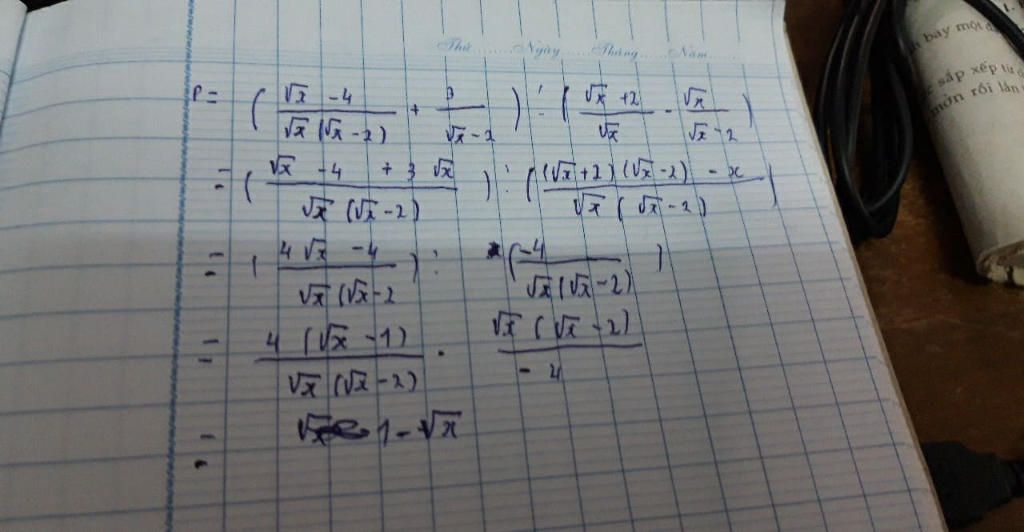 Thứ Ngày Tháng Năm
P = ( (√x - 4)/(√x (√x - 2)) + 3/(√x - 2) ) : ( (√x + 2)/√x - √x/(√x - 2) )
= ( (√x - 4 + 3√x)/(√x (√x - 2)) ) : ( ((√x + 2)(√x - 2) - x)/(√x (√x - 2)) )
= ( (4√x - 4)/(√x (√x - 2) ) : ( -4/(√x (√x - 2)) )
= (4 (√x - 1))/(√x (√x - 2)) . (√x (√x - 2))/(-4)
= 1 - √x
bay một
sắp xếp từ
món rồi lần